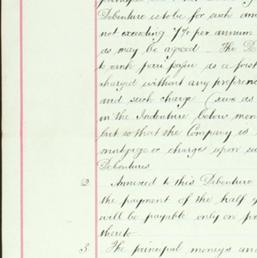 Debenture is to be for such
not exceeding 7% per annum
as may be agreed - The D
to rank pari passu as a first
charged without any preferen
and such charge (save as
in the Indenture below men
but so that the Company is
mortgage or charge upon
Debentures
2 Annexed to this Debenture
the payment of the half y
will be payable only on
thereto
3 The principal moneys and